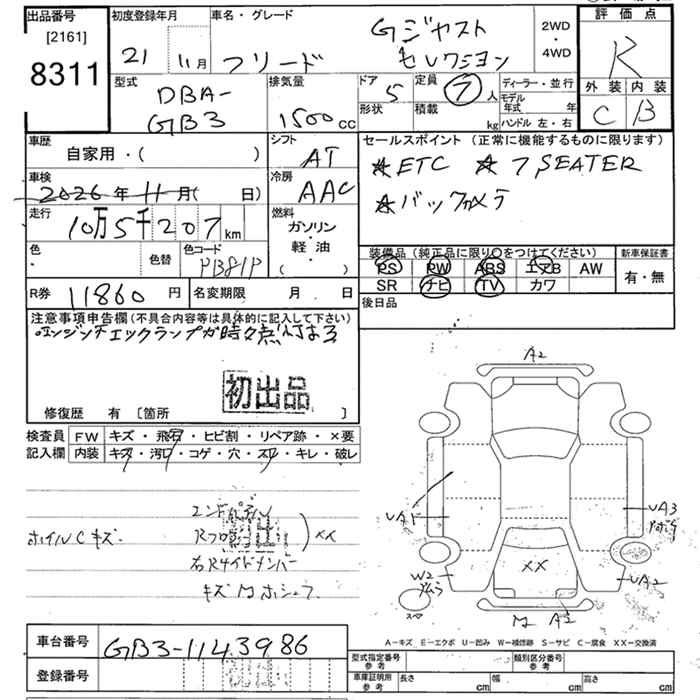 出品番号
[2161]
8311
初度登録年月
21 11月
車名・グレード
フリード
Gジャスト
セレクション
2WD
・
4WD
評価点
R
外装 内装
C B
型式
DBA-
GB3
排気量
1500cc
ドア
5
形状
定員
7人
積載
kg
ディーラー・並行
モデル
年式 年
ハンドル 左・右
車歴
自家用・( )
シフト
AT
セールスポイント (正常に機能するものに限ります)
★ETC ★7SEATER
★バックカメラ
車検
2026年 11月( 日)
冷房
AAC
走行
10万5千207km
燃料
ガソリン
・
軽油
( )
色
色替
色コード
PB81P
装備品 (純正品に限り○をつけてください)
PS PW ABS エアB AW
SR ナビ TV カワ
新車保証書
有・無
R券 11860円
名変期限 月 日
後日品
注意事項申告欄(不具合内容等は具体的に記入して下さい)
エンジンチェックランプが時々点灯する
初出品
修復歴 有 [箇所 ]
検査員
記入欄
FW キズ・飛石・ヒビ割・リペア跡・×要
内装 キズ・汚レ・コゲ・穴・スレ・キレ・破レ
ホイルCキズ
××
右Rサイドメンバー
A2
UA3
UA2
W2
××
スペア
A-キズ E-エクボ U-凹み W-補修跡 S-サビ C-腐食 XX-交換済
車台番号 GB3-1143986
登録番号
型式指定番号
参考
類別区分番号
参考
車庫証明用
参考
長さ cm
幅 cm
高さ cm